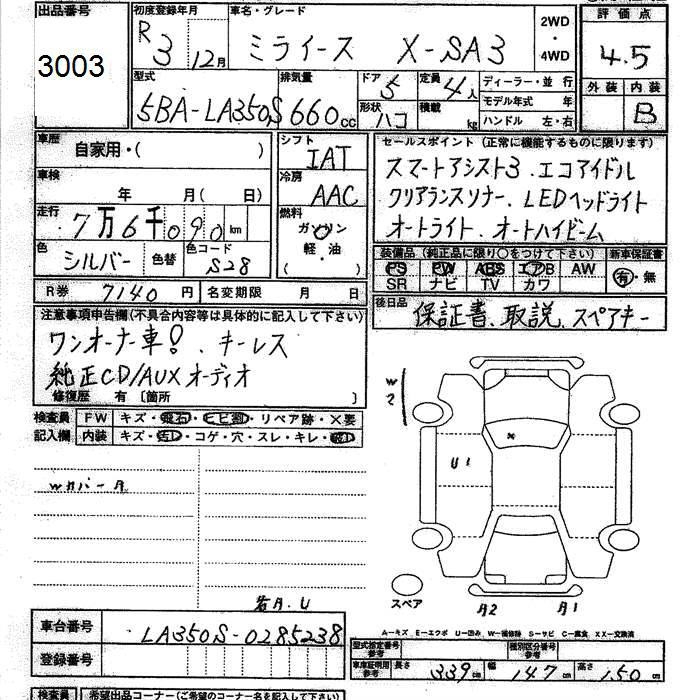 出品番号 3003
初度登録年月 R3 12月
車名・グレード ミライース X-SA3
2WD・4WD
評価点 4.5
外装 内装 B
型式 5BA-LA350S
排気量 660cc
ドア 5
定員 4人
形状 ハコ
積載 kg
ディーラー・並行
モデル年式 年
ハンドル 左・右
車歴 自家用・( )
車検 年 月( 日)
走行 7万6千090km
色 シルバー 色替
色コード S28
シフト IAT
冷房 AAC
燃料 ガソリン
軽・油
( )
セールスポイント (正常に機能するものに限ります)
スマートアシスト3、エコアイドル
クリアランスソナー、LEDヘッドライト
オートライト、オートハイビーム
装備品 (純正品に限り〇をつけて下さい) 新車保証書
PS PW ABS エアB AW 有・無
SR ナビ TV カワ
R券 7140円 名変期限 月 日
後日品 保証書、取説、スペアキー
注意事項申告欄(不具合内容等は具体的に記入して下さい)
ワンオーナー車!、キーレス
純正CD/AUXオーディオ
修復歴 有〔箇所 〕
検査員 FW キズ・飛石・ヒビ割・リペア跡・×要
記入欄 内装 キズ・汚レ・コゲ・穴・スレ・キレ
W2
U1
×
Wカバー
スペア
2
1
U
A-キズ E-エクボ U-凹み W-補修跡 S-サビ C-腐食 XX-交換済
車台番号 LA350S-0285238
登録番号
型式指定番号 参考 種別区分番号 参考
車庫証明用 参考 長さ 339cm 幅 147cm 高さ 150cm
検査員 希望出品コーナー(ご希望のコーナー名を記入下さい)